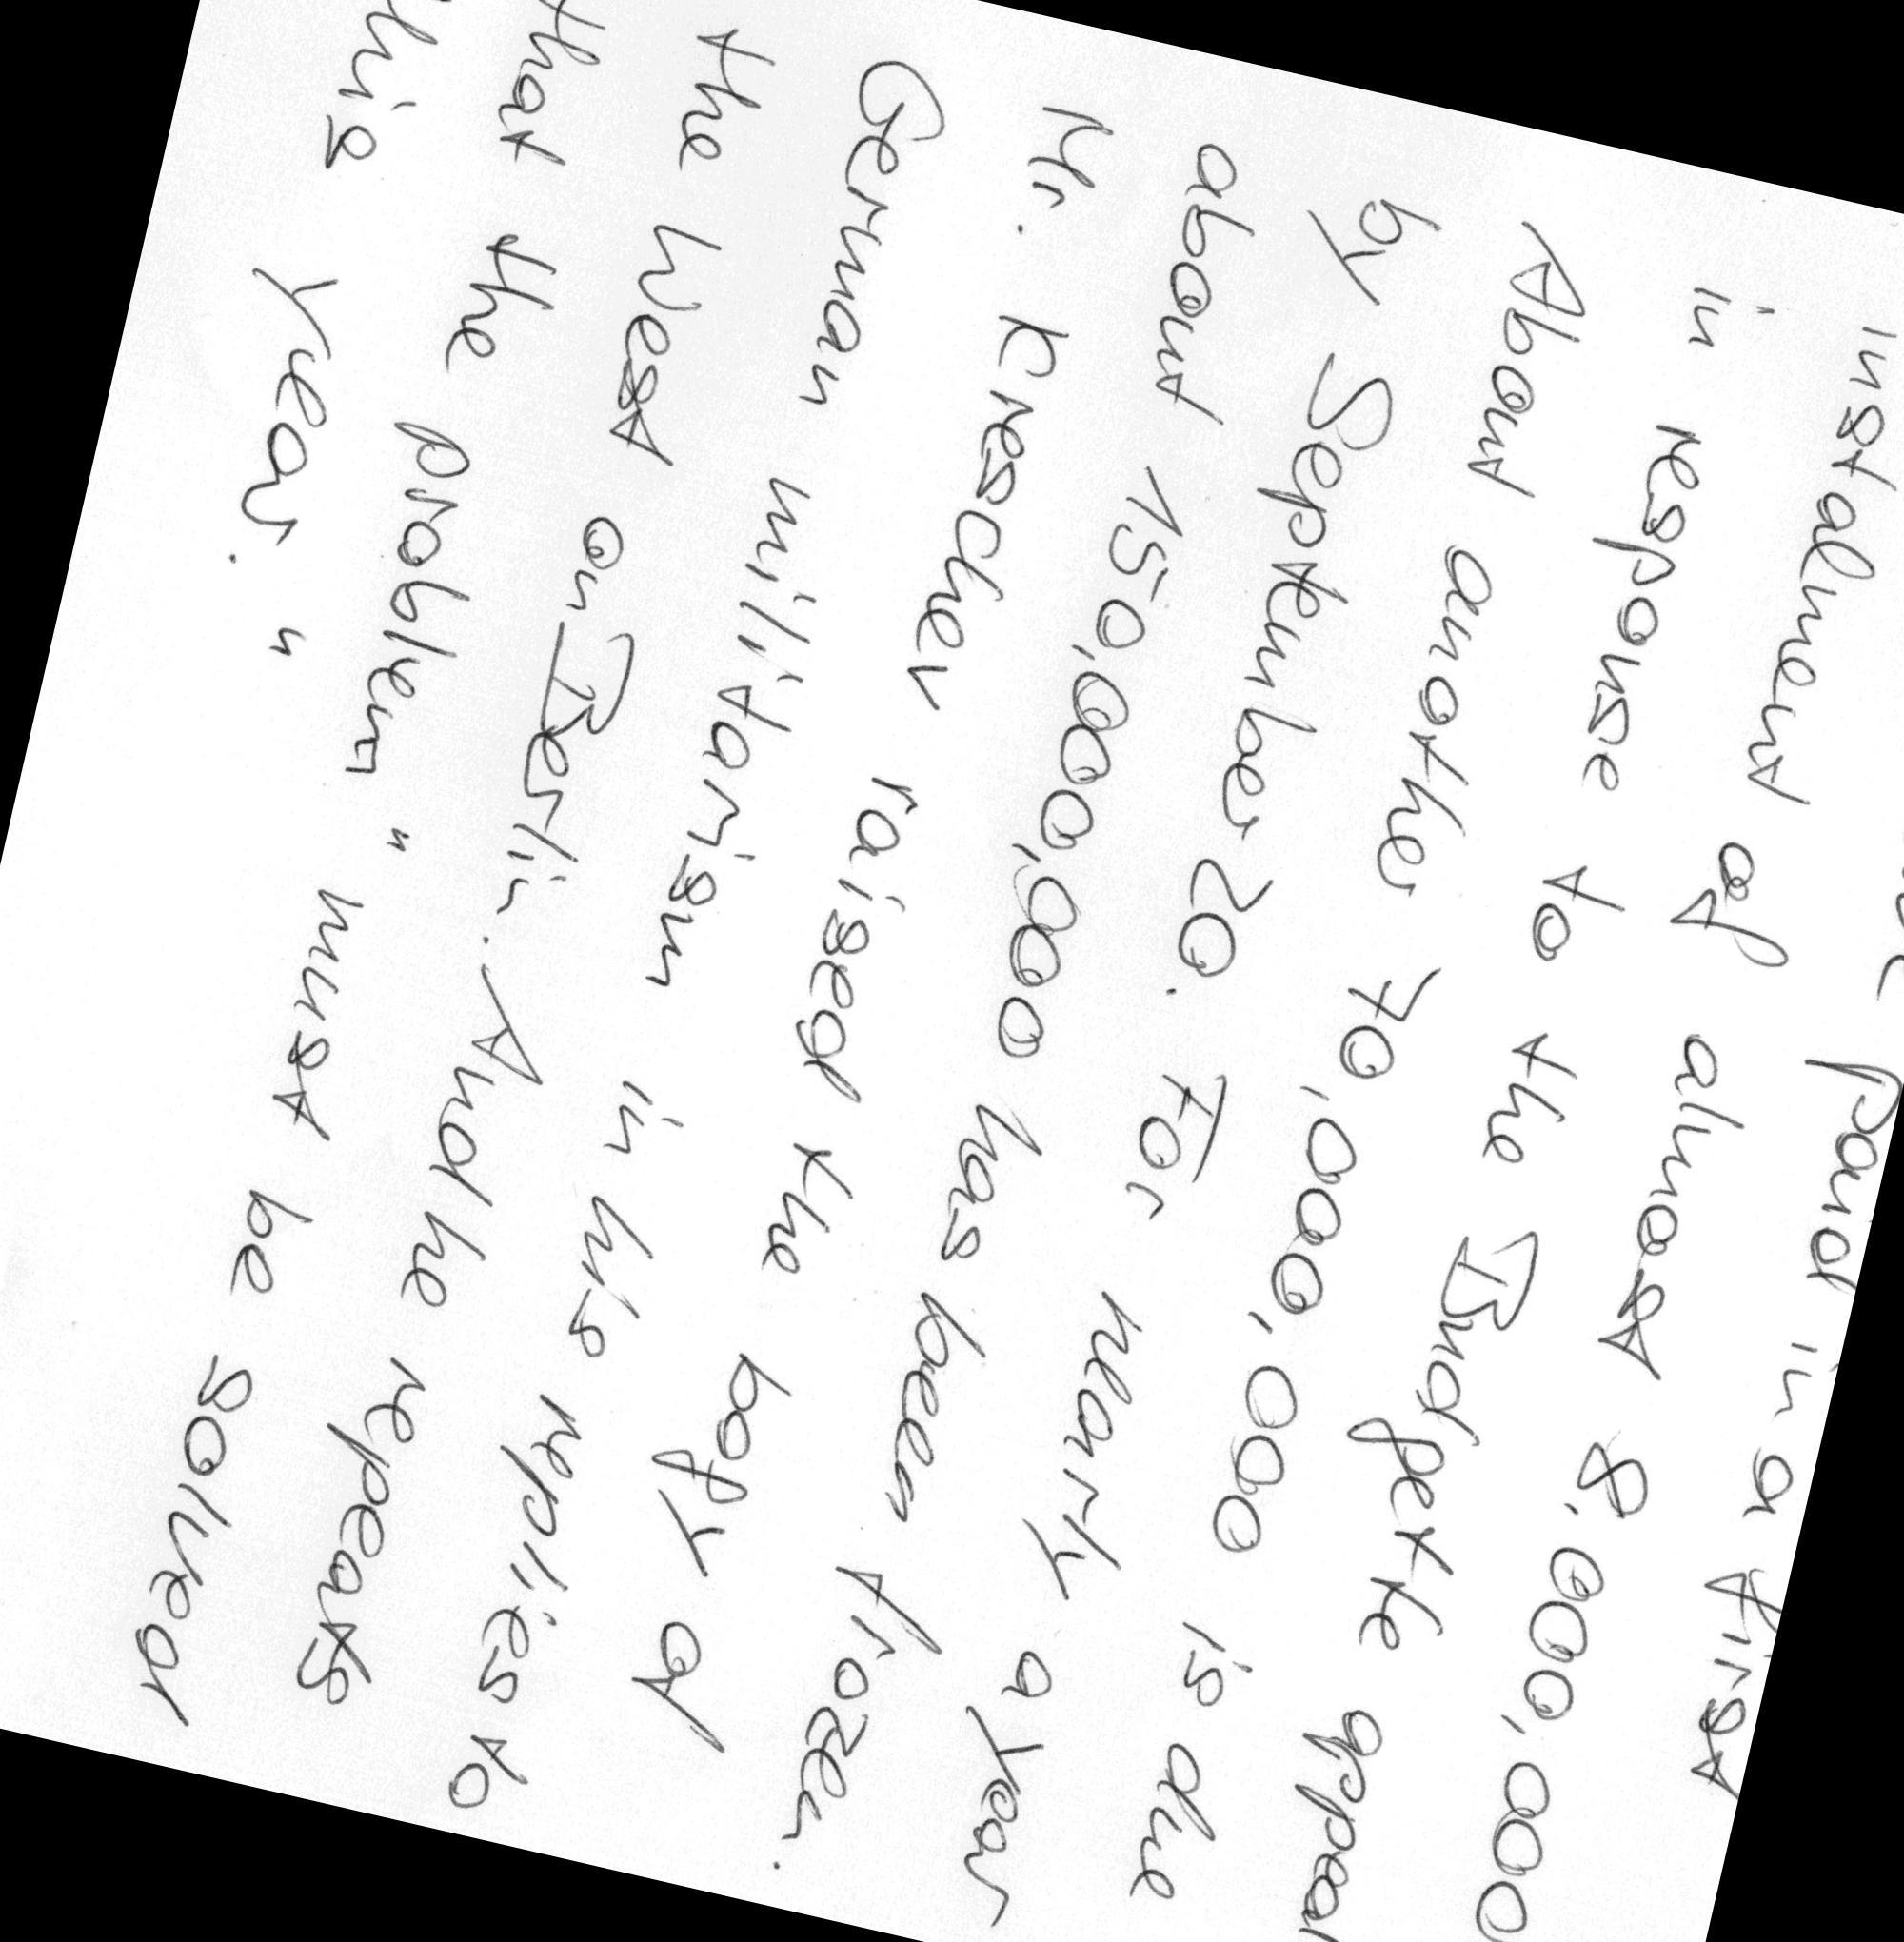 paid in a first
instalment of almost 8.000,000
in response to the Budgette appeal
About another 70,000,000 is due
by September 20. For nearly a year
about 150,000,000 has been frozen.
Mr. Kreschev raised the bogy of
German militarism in his replies to
the West on Berlin. And he repeats
that the problem " must be solved
this year. "